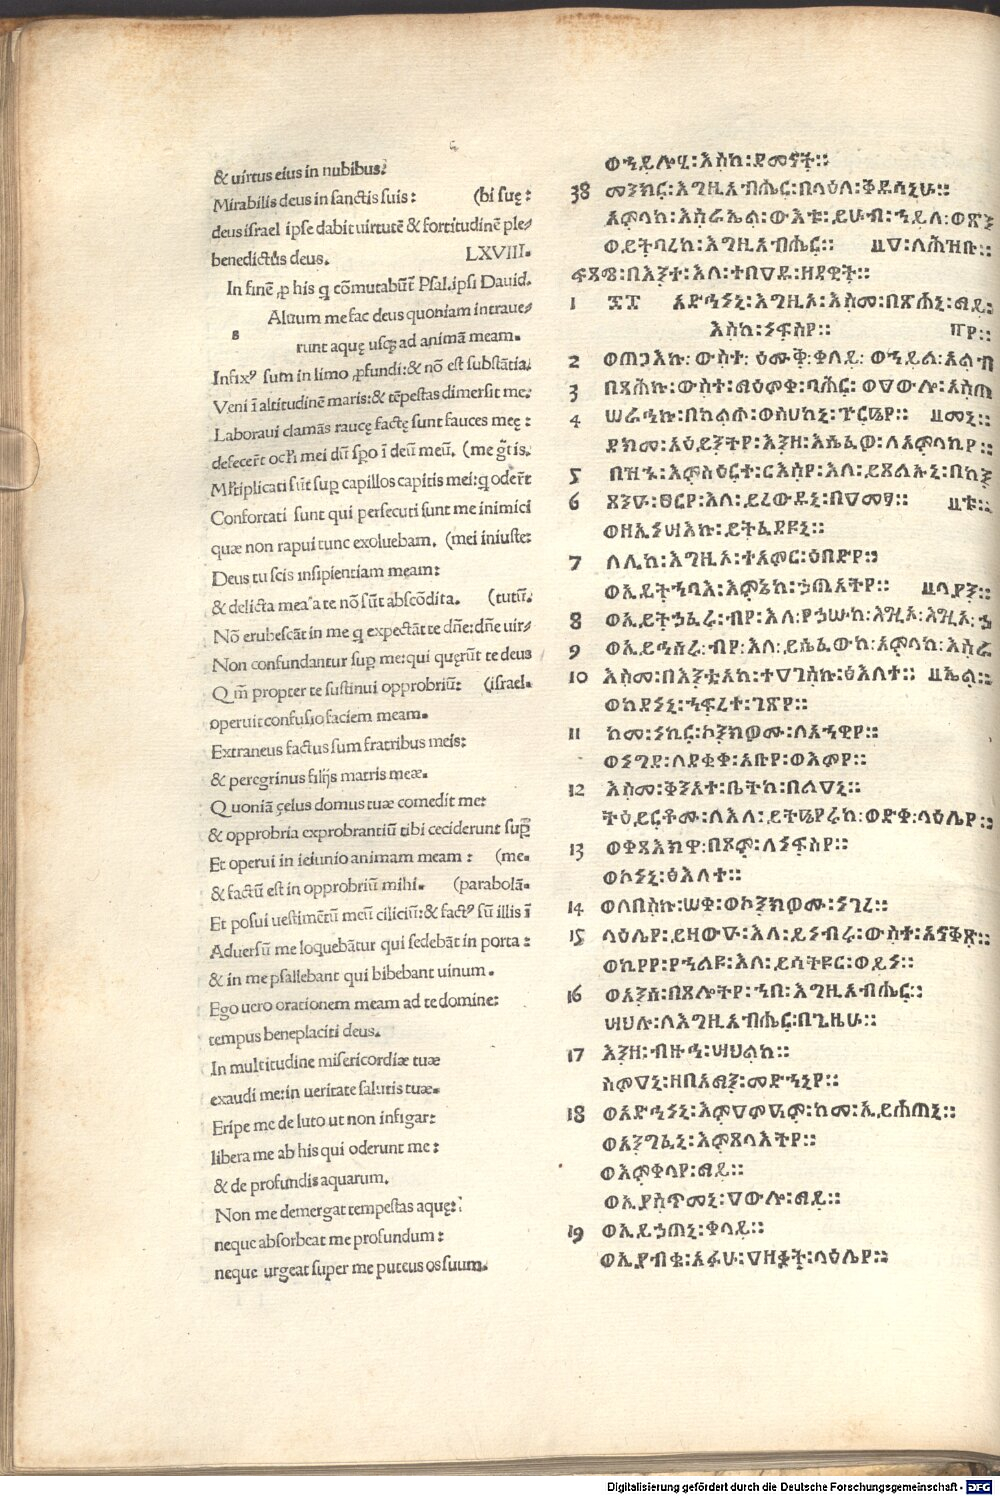 & uirtus eius in nubibus:
Mirabilis deus in sanctis suis: (bi suę:
deus israel ipse dabit uirtutē & fortitudinē ple⸗
benedictus deus. LXVIII.
In finē ꝓ his q cōmutabūt̄ Psal. ipsi Dauid.
s Aluum me fac deus quoniam intraue⸗
runt aquę usq; ad animā meam.
Infixꝰ sum in limo ꝓfundi: & nō est substātia:
Veni ī altitudinē maris: & tēpestas dimersit me:
Laboraui clamās raucę factę sunt fauces meę:
defecer̄t oc̄li mei dū spo ī deū meū. (me gr̄tis.
Ml̄tiplicati sūt sup capillos capitis mei: q oder̄t
Confortati sunt qui persecuti sunt me inimici
quæ non rapui tunc exoluebam. (mei iniuste:
Deus tu scis insipientiam meam:
& delicta mea a te nō sūt abscōdita. (tutū.
Nō erubescāt in me q expectāt te dn̄e: dn̄e uir⸗
Non confundantur sup me: qui quęrūt te deus
Qm̄ propter te sustinui opprobriū: (israel.
operuit confusio faciem meam.
Extraneus factus sum fratribus meis:
& peregrinus filijs matris meæ.
Quoniā çelus domus tuæ comedit me:
& opprobria exprobrantiū tibi ceciderunt sup
Et operui in ieiunio animam meam: (me.
& factū est in opprobriū mihi. (parabolā.
Et posui uestimētū meū ciliciū: & factꝰ sū illis ī
Aduersū me loquebātur qui sedebāt in porta:
& in me psallebant qui bibebant uinum.
Ego uero orationem meam ad te domine:
tempus beneplaciti deus.
In multitudine misericordiæ tuæ
exaudi me: in ueritate salutis tuæ.
Eripe me de luto ut non infigar:
libera me ab his qui oderunt me:
& de profundis aquarum.
Non me demergat tempestas aquę:
neque absorbeat me profundum:
neque urgeat super me puteus os suum.
ወኀይሉኒ፡እስከ፡ደመናት።
38 መንክር፡እግዚአብሔር፡በላዕለ፡ቅዱሳኒሁ።
አምላከ፡እስራኤል፡ውእቱ፡ይሁብ፡ኀይለ፡ወጽን
ወይትባረክ፡እግዚአብሔር። ዐ፡ለሕዝቡ።
ፍጻሜ፡በእንተ፡እለ፡ተበዐዱ፡ዘዳዊት።
1 ፷፰ አድኅነኒ፡እግዚኦ፡እስመ፡በጽሐኒ፡ማይ፡
እስከ፡ነፍስየ።
2 ወጠጋእኩ፡ውስተ፡ዕሙቅ፡ቀላይ፡ወኀይል፡አልብ
3 በጻሕኩ፡ውስተ፡ማዕምቀ፡ባሕር፡ወዐውሎ፡አስጠ
4 ሠራኅኩ፡በከልሖ፡ወስሕከኒ፡ጕርዔየ። መኒ።
ደክማ፡አዕይንትየ፡እንዘ፡እሴፈዎ፡ለአምላኪየ።
5 በዝኁ፡እምስዕርተ፡ርእስየ፡እለ፡ይጸልኡኒ፡በከን
6 ጸንዑ፡ፀርየ፡እለ፡ይረውዱኒ፡በዐመፃ። ቱ።
ወዘኢነሣእኩ፡ይትፈደዩኒ።
7 ለሊከ፡እግዚኦ፡ተአምር፡ዕበድየ።
ወኢይትኀባእ፡እምኔከ፡ኃጢአትየ። ላያን።
8 ወኢይትኃፈሩ፡ብየ፡እለ፡የኃሡከ፡እግዚኦ፡እግዚኦ፡ኃ
9 ወኢይኅሰሩ፡ብየ፡እለ፡ይሴፈውከ፡አምላከ፡እስራ
10 እስመ፡በእንቲአከ፡ተዐገስኩ፡ፅእለተ። ኤል።
ወከደነኒ፡ኀፍረተ፡ገጽየ።
11 ከመ፡ነኪር፡ኮንክዎሙ፡ለአኀዊየ።
ወነግደ፡ለደቂቀ፡አቡየ፡ወእምየ።
12 እስመ፡ቅንአተ፡ቤትከ፡በልዐኒ።
ትዕይርቶሙ፡ለእለ፡ይትዔየሩከ፡ወድቀ፡ላዕሌየ።
13 ወቀጻእክዋ፡በጾም፡ለነፍስየ።
ወኮነኒ፡ፅእለተ።
14 ወለበስኩ፡ሠቀ፡ወኮንክዎሙ፡ነገረ።
15 ላዕሌየ፡ይዛውዑ፡እለ፡ይነብሩ፡ውስተ፡አናቅጽ።
ወኪየየ፡የኀልዩ፡እለ፡ይሰትዩ፡ወይነ።
16 ወአንሰ፡በጸሎትየ፡ኀበ፡እግዚአብሔር።
ሣህሉ፡ለእግዚአብሔር፡በጊዜሁ።
17 እንዘ፡ብዙኅ፡ሣህልከ።
ስምዐኒ፡ዘበአማን፡መድኀኒየ።
18 ወአድኅነኒ፡እምዐምዓም፡ከመ፡ኢይሕጠኒ።
ወአንግፈኒ፡እምጸላእትየ።
ወእምቀላየ፡ማይ።
ወኢያስጥመኒ፡ዐውሎ፡ማይ።
19 ወኢይኃጠኒ፡ቀላይ።
ወኢያብቁ፡አፉሁ፡ዐዘቅት፡ላዕሌየ።
Digitalisierung gefördert durch die Deutsche Forschungsgemeinschaft - DFG